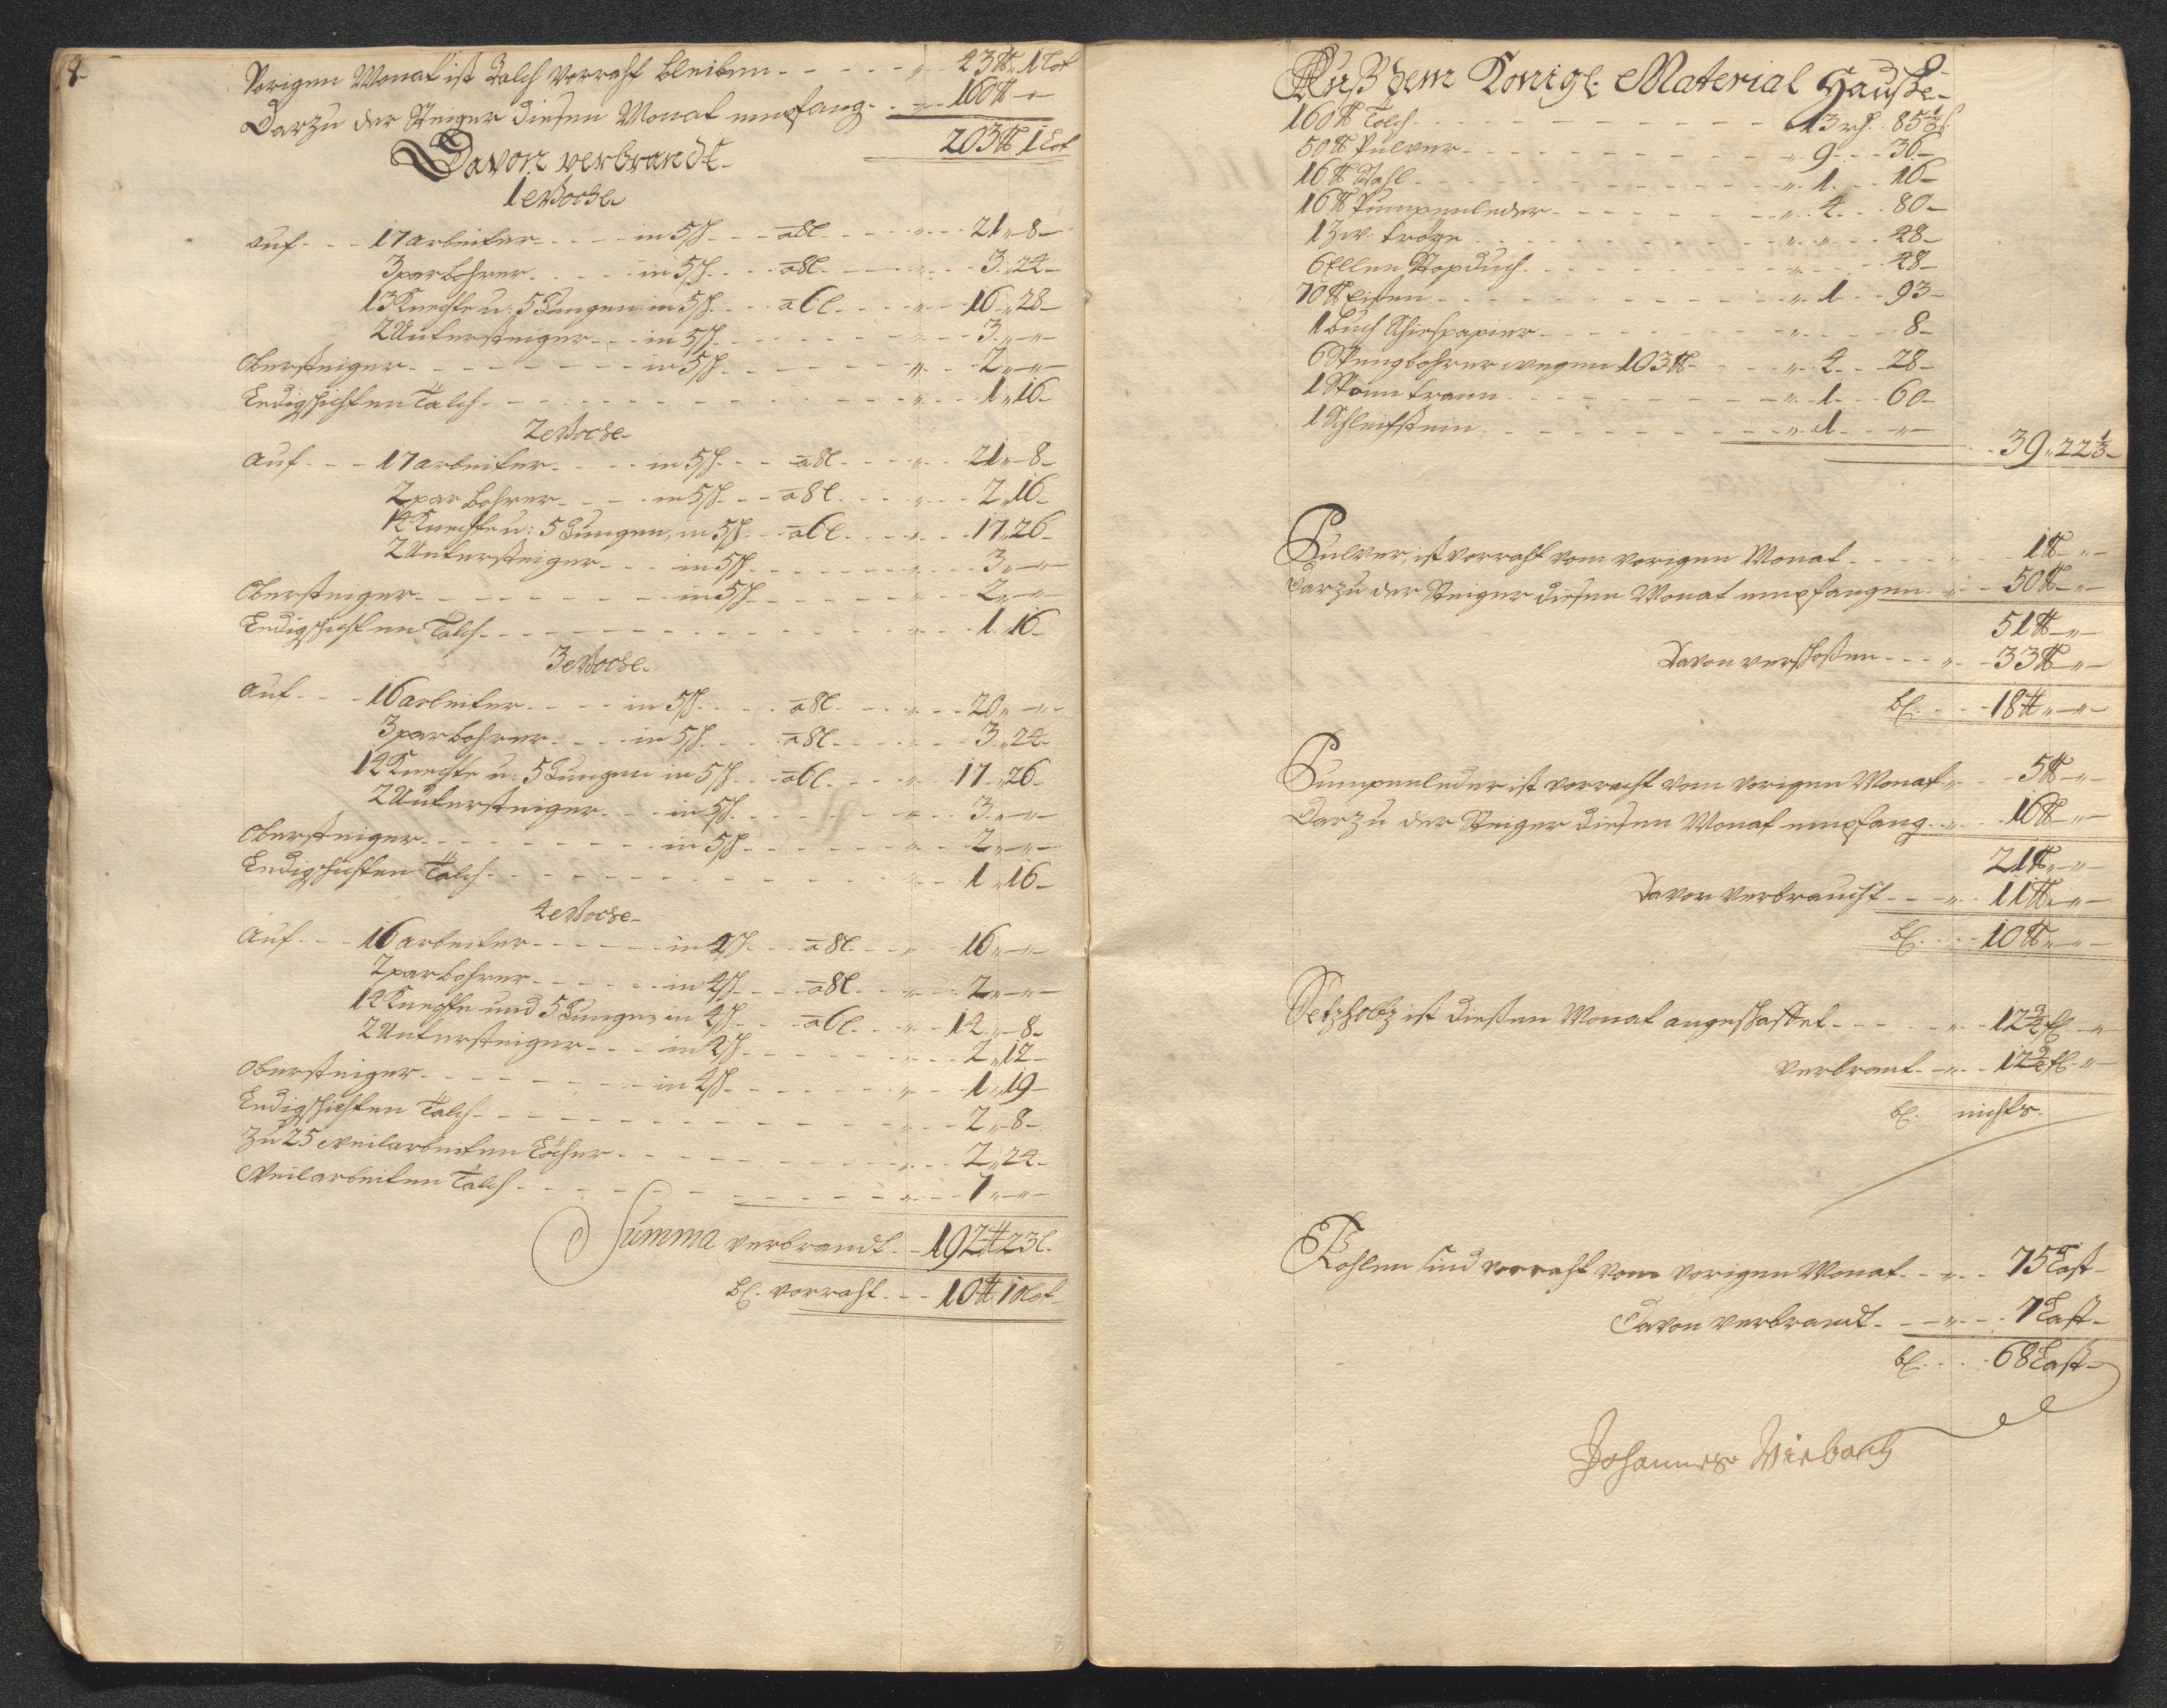 Vorigen Monat ist Talch vorraht bleiben - - - - - " - 43 ℔ " 1 Lot
Darzu der Steiger diesen Monat empfang - " - 160 ℔ - " -
203 ℔ 1 Lot
Davon verbrandt -
1 Woche
auf - - - 17 arbeiter - - - - in 5 ſch - - - a 8 l - - - - " - - - 21 " - 8 -
3 par bohrer - - - - - in 5 ſch - - - a 8 l - - - - " - - - 3 " 24 -
13 Knechte u: 5 Jungen in 5 ſch - - - a 6 l - - - - " - - 16 " 28 -
2 Untersteiger - - - in 5 ſch - - - - - - - " - - - 3 " - " -
Obersteiger - - - - - - - - - in 5 ſch - - - - - - - " - - - 2 " - " -
Ledigschichten Talch - - - - - - - - - - - - - - " - - 1 " 16 -
2 Woche -
Auf - - - 17 arbeiter - - - - in 5 ſch - - - a 8 l - - - - " - - - 21 " - 8 -
2 par bohrer - - - - in 5 ſch - - - a 8 l - - - - " - - - 2 " 16 -
14 Knechte u: 5 Jungen, in 5 ſch - - a 6 l - - - - " - - - 17 " 26 -
2 Untersteiger - - - in 5 ſch - - - - - - - " - - - 3 " - " -
Obersteiger - - - - - - - - - in 5 ſch - - - - - - - " - - - 2 " - " -
Ledigschichten Talch - - - - - - - - - - - - - - " - - - 1 " 16 -
3 Woche -
Auf - - - 16 arbeiter - - - - in 5 ſch - - - a 8 l - - - - " - - - 20 " - " -
3 par bohrer - - - - in 5 ſch - - - a 8 l - - - - " - - - 3 " 24 -
14 Knechte u: 5 Jungen in 5 ſch - - a 6 l - - - - " - - 17 " 26 -
2 Untersteiger - - - in 5 ſch - - - - - - - " - - - 3 " - " -
Obersteiger - - - - - - - - - in 5 ſch - - - - - - - " - - - 2 " - " -
Ledigschichten Talch - - - - - - - - - - - - - - " - - - 1 " 16 -
4 Woche -
Auf - - - 16 arbeiter - - - - - in 4 ſch - - - a 8 l - - - " - - 16 " - " -
2 par bohrer - - - - - in 4 ſch - - - a 8 l - - - " - - 2 " - " -
14 Knechte und 5 Jungen in 4 ſch - - - a 6 l - - - " - - 14 " - 8 -
2 Untersteiger - - - in 4 ſch - - - - - - - " - - - 2 " 12 -
Obersteiger - - - - - - - - - in 4 ſch - - - - - - - " - - - 1 " 19 -
Ledigschichten Talch - - - - - - - - - - - - - - " - - - 2 " - 8 -
Zu 25 Weilarbeiten Löcher - - - - - - - - - " - - - 2 " 24 -
Weilarbeiten Talch - - - - - - - - - - - - " - - - 7 " - " -
Summa verbrandt - - 192 ℔ 23 l.
bl. vorraht - - - 10 ℔ 10 Lot -
Auß dem Konigl: Material Hauße -
160 ℔ Talch - - - - - - - - - - 13 rh. 85 1/3 ſ
50 ℔ Pulver - - - - - - - - - - " - 9 - - - 36 -
16 ℔ Stahl - - - - - - - - - - " - 1 - - - 16 -
16 ℔ Pumpenleder - - - - - - - - " - 4 - - - 80 -
1 Zw: tröge - - - - - - - - - - " - " - - - 48 -
6 Ellen Stopduch - - - - - - - - " - - - - 48 -
70 ℔ Eisen - - - - - - - - - - " - 1 - - - 93 -
1 Buch Schiespapier - - - - - - - " - - - - - 8 -
6 Stengbohrer wegen 103 ℔ - - - - " - 4 - - - 28 -
1 Tonn trann - - - - - - - - - " - 1 - - - 60 -
1 Schleifstein - - - - - - - - - " - 1 - - - " -
39 " 22 1/3 -
Pulver, ist vorraht vom vorigen Monat - - - - " - - 1 ℔ - " -
Darzu der Steiger diesen Monat empfangen - " - - 50 ℔ - " -
51 ℔ - " -
Davon verschoßen - - - " - - 33 ℔ - " -
bl. - - - - 18 ℔ " - " -
Pumpenleder ist vorraht vom vorigen Monat - " - - 5 ℔ - " -
Darzu der Steiger diesen Monat empfang - - " - - 16 ℔ - " -
21 ℔ " - " -
Davon verbraucht - - - " - - 11 ℔ - " -
bl. - - - - 10 ℔ " - " -
Setzholtz ist dießen Monat angeschaffet - - - - " - - 12 3/4 fl - "
verbrant - - " - - 12 3/4 fl - " -
bl. nichts.
Kohlen sind vorraht vom vorigen Monat - - " - - 75 Last -
Davon verbrandt - - - " - - - 7 Last -
bl. - - - - 68 Last -
Johannes Wiebach